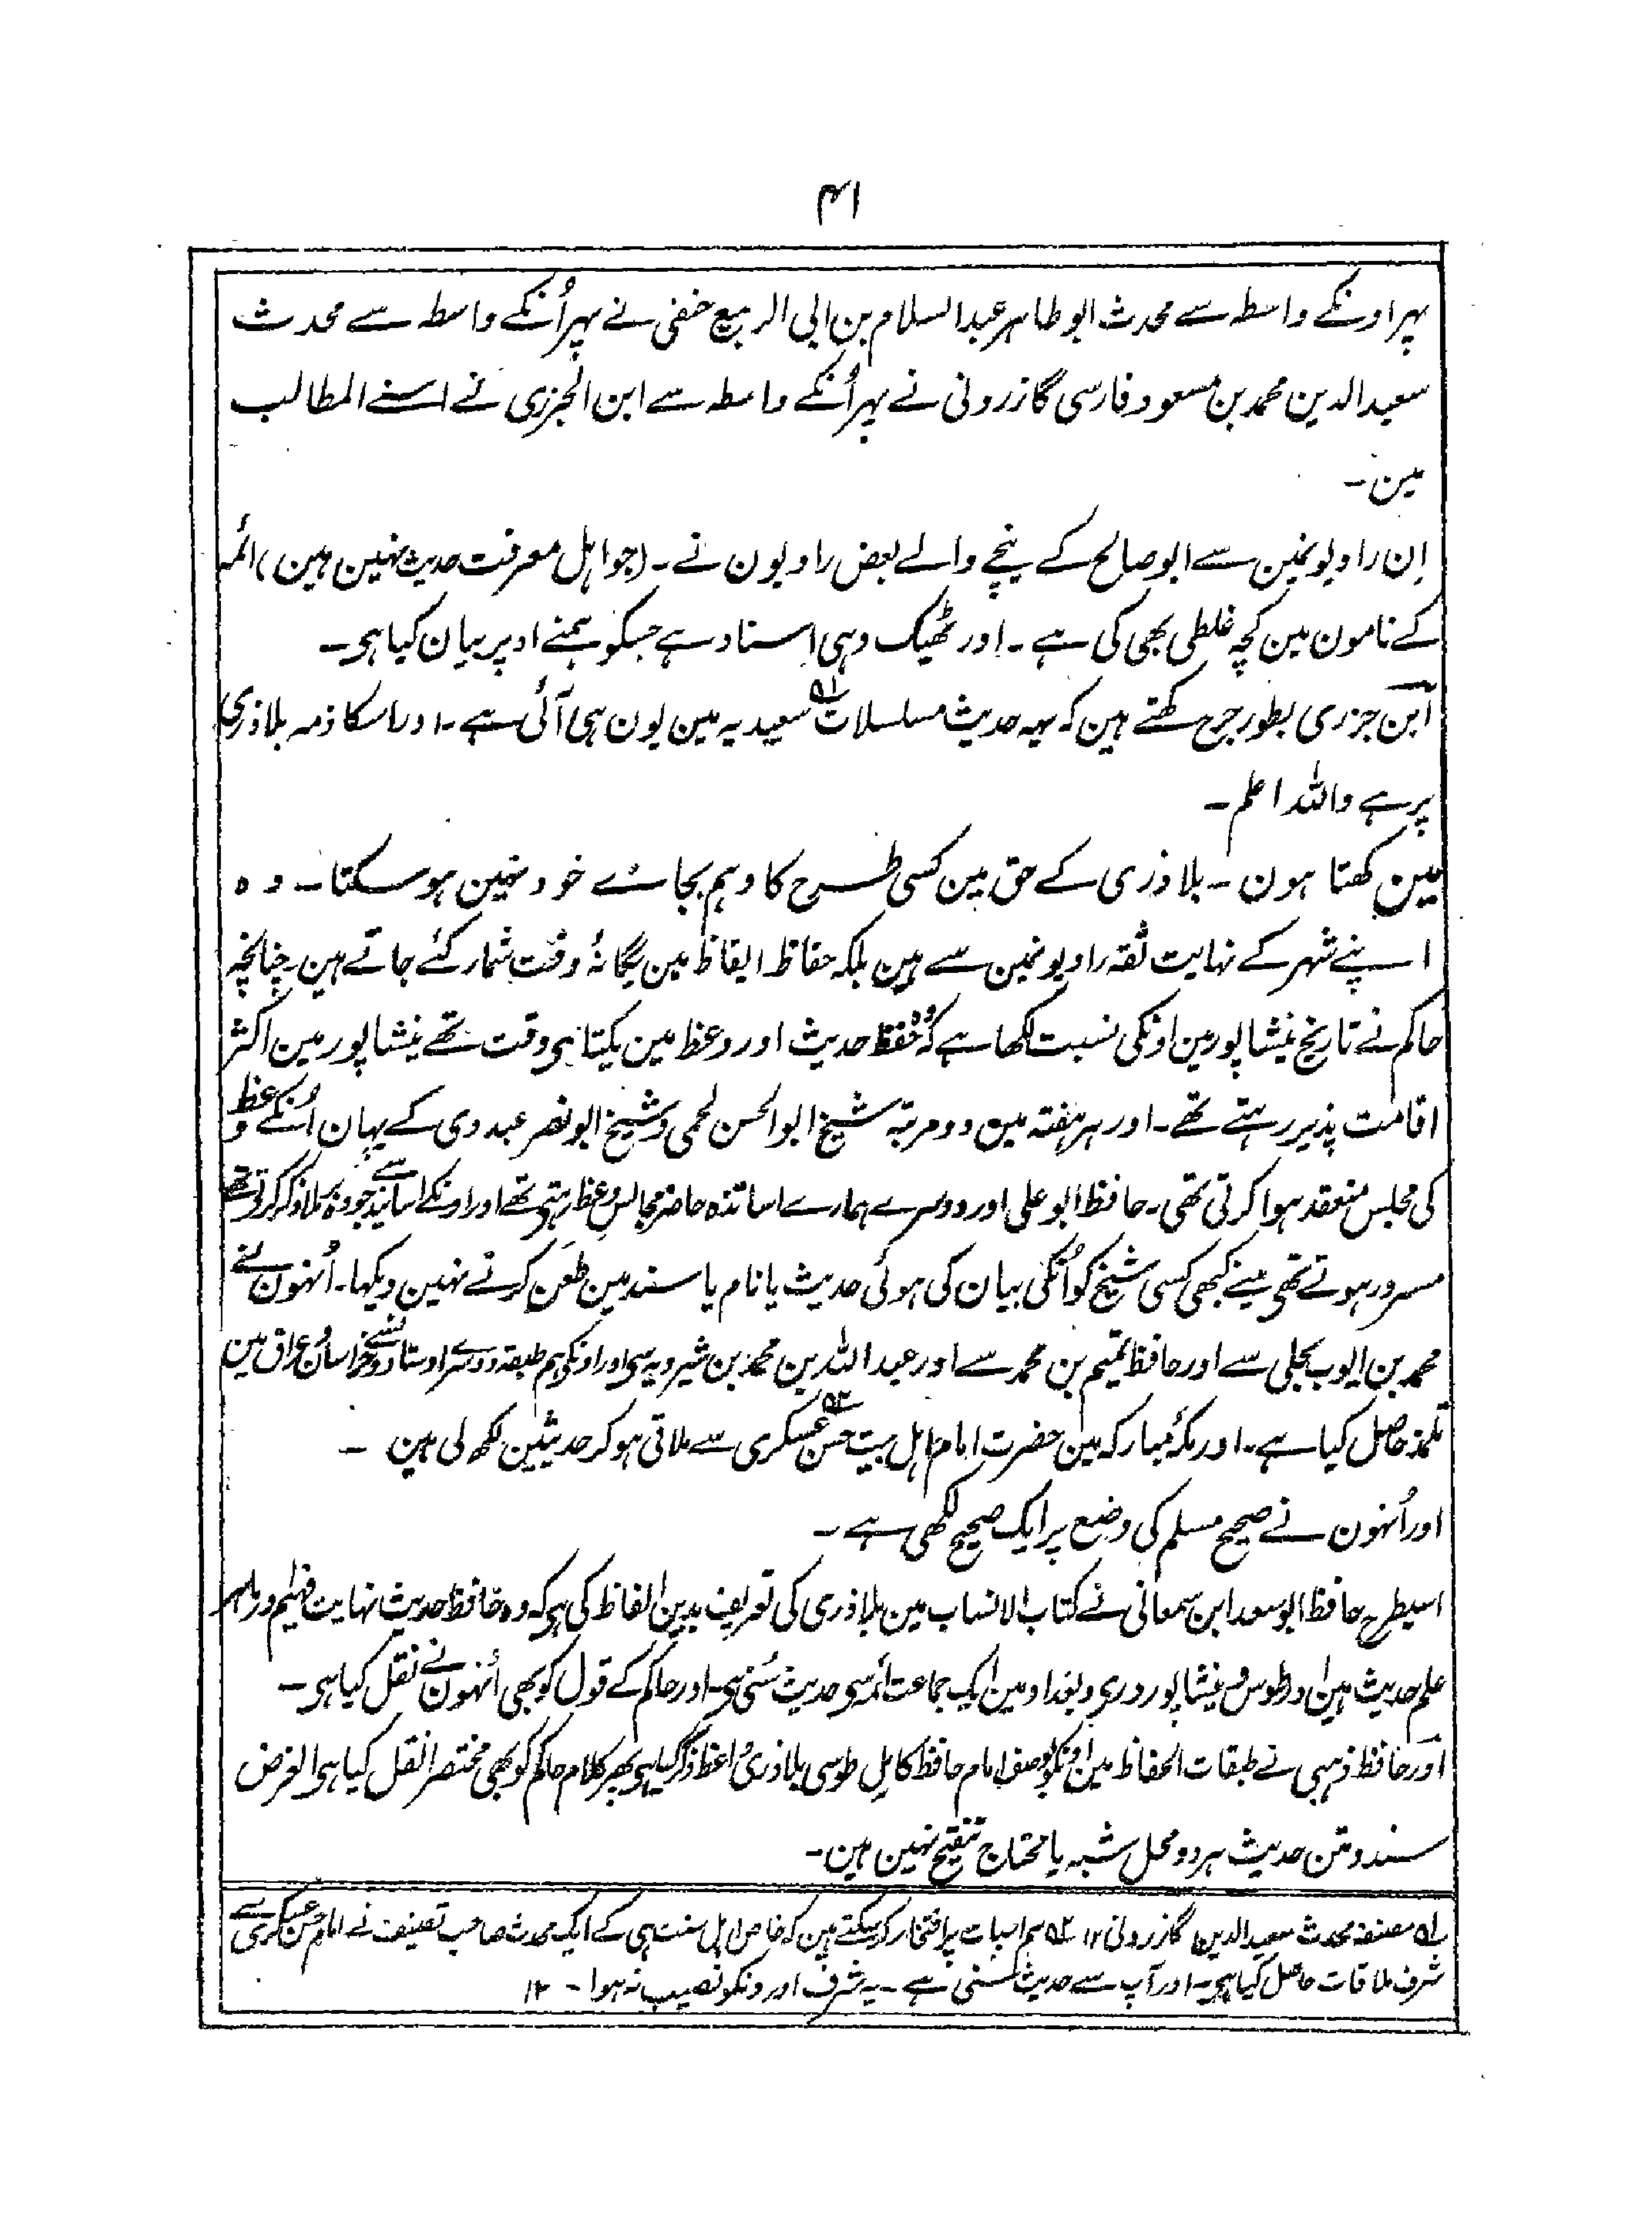 ۴۱
پہر اونکے واسطہ سے محدث ابو طاہر عبدالسلام بن ابی الربیع حنفی نے پہر اُنکے واسطہ سے محدث
سعید الدین محمد بن مسعود فارسی گازرونی نے پہر اُنکے واسطہ سے ابن الجزری نے اسنے المطالب
مین ـ
اِن راویونمین سے ابو صالح کے نیچے والے بعض راویون نے ـ (جو اہل معرفت حدیث نہین ہین) ائمہ
کے نامون مین کچہ غلطی بھی کی ہے ـ اور ٹھیک وہی اسناد ہے جسکو ہمنے اوپر بیان کیا ہی ـ
ابن جزری بطور جرح کہتے ہین کہ یہہ حدیث مسلسلات ۱ہ سعیدیہ مین یون ہی آئی ہے ـ اور اسکا ذمہ بلاذری
پر ہے واللہ اعلم ـ
مین کھتا ہون ـ بلاذری کے حق مین کسی طرح کا وہم بجائے خود نہین ہو سکتا ـ وہ
اپنے شہر کے نہایت ثقہ راویونمین سے ہین بلکہ حفاظ ایقاظ مین یگانۂ وقت شمار کئے جاتے ہین ـ چنانچہ
حاکم نے تاریخ نیشاپور مین اونکی نسبت لکھا ہے کہ وہ حفظ حدیث اور وعظ مین یکتا ہی وقت تھے نیشاپور مین اکثر
اقامت پذیر رہتے تھے ـ اور ہر ہفتہ مین دو مرتبہ شیخ ابو الحسن لحمی و شیخ ابو نصر عبدوی کے یہان اُنکے وعظ
کی مجلس منعقد ہوا کرتی تھی ـ حافظ ابو علی اور دوسرے ہمارے اساتذہ حاضر مجالس وعظ رہتی تھے اور اونکے اسانید سے جو وہ برملا ذکر کرتی تھے
مسرور ہوتے تھی مینے کبھی کسی شیخ کو اُنکی بیان کی ہوئی حدیث یا نام یا سند مین طعن کرتے نہین دیکہا ـ اُنہون نے
محمد بن ایوب بجلی سے اور حافظ تمیم بن محمد سے اور عبداللہ بن محمد بن شیرویہ سی اور اونکی ہم طبقہ دوسرے اوستادونسے خراسان و عراق مین
تلمذ حاصل کیا ہے ـ اور مکۂ مبارکہ مین حضرت امام اہل بیت حسن عسکری ۲ہ سے ملاقی ہو کر حدیثین لکھ لی ہین ـ
اور اُنہون نے صحیح مسلم کی وضع پر ایک صحیح لکھی ہے ـ
اسیطرح حافظ ابو سعد ابن سمعانی نے کتاب الانساب مین بلاذری کی تعریف بدین الفاظ کی ہی کہ وہ حافظ حدیث نہایت فہیم و ماہر
علم حدیث ہین اور طوس و نیشاپور و ری و بغداد مین ایک جماعت ائمہ سی حدیث سُنی ہی ـ اور حاکم کے قول کو بھی اُنہون نے نقل کیا ہی ـ
اور حافظ ذہبی نے طبقات الحفاظ مین اونکو بوصف امام حافظ کامل طوسی بلاذری واعظ ذکر کیا ہی پھر کلام حاکم کو بھی مختصراً نقل کیا ہی الغرض
سند و متن حدیث ہر دو محل شبہ یا محتاج تنقیح نہین ہین ـ
۱ہ مصنفہ محدث سعید الدین گازرونی ۱۲ ۲ہ ہم اسبات پر افتخار کر سکتے ہین کہ خاص اہل سنت ہی کے ایک محدث صاحب تصنیف نے امام حسن عسکری سے
شرف ملاقات حاصل کیا ہی ـ اور آپ سے حدیث سنی ہے ـ یہ شرف اورونکو نصیب نہوا ـ ۱۲